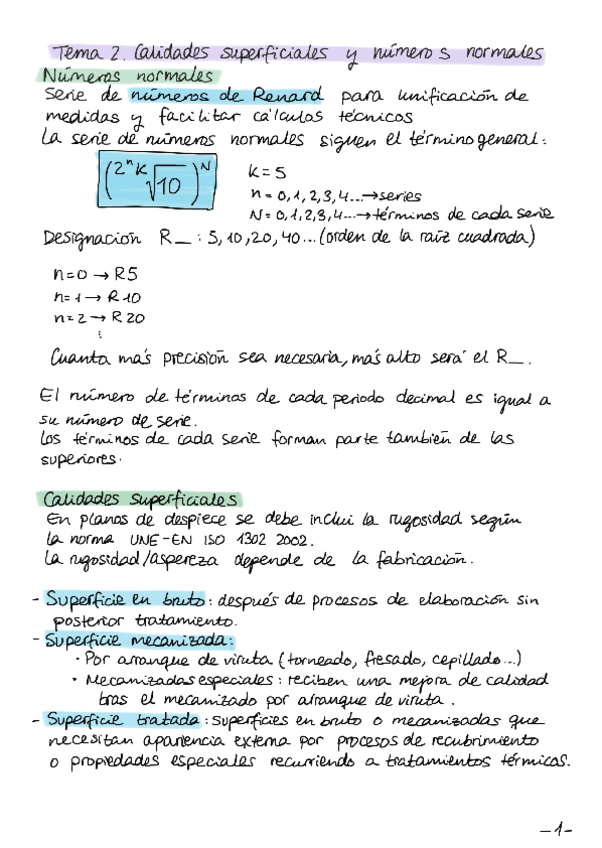 Tema 2. Calidades superficiales y números normales
Números normales
Serie de números de Renard para unificación de
medidas y facilitar cálculos técnicos
La serie de números normales siguen el término general:
(2ⁿK√10)ᴺ
K=5
n=0,1,2,3,4...→series
N=0,1,2,3,4...→términos de cada serie
Designación R_: 5,10,20,40...(orden de la raíz cuadrada)
n=0 → R5
n=1 → R10
n=2 → R20
⋮
Cuanta más precisión sea necesaria, más alto será el R_.
El número de términos de cada periodo decimal es igual a
su número de serie.
Los términos de cada serie forman parte también de las
superiores.
Calidades superficiales
En planos de despiece se debe inclui la rugosidad según
la norma UNE-EN ISO 1302 2002.
La rugosidad/aspereza depende de la fabricación.
- Superficie en bruto: después de procesos de elaboración sin
posterior tratamiento.
- Superficie mecanizada:
· Por arranque de viruta (torneado, fresado, cepillado...)
· Mecanizadas especiales: reciben una mejora de calidad
tras el mecanizado por arranque de viruta.
- Superficie tratada: superficies en bruto o mecanizadas que
necesitan apariencia externa por procesos de recubrimiento
o propiedades especiales recurriendo a tratamientos térmicos.
-1-